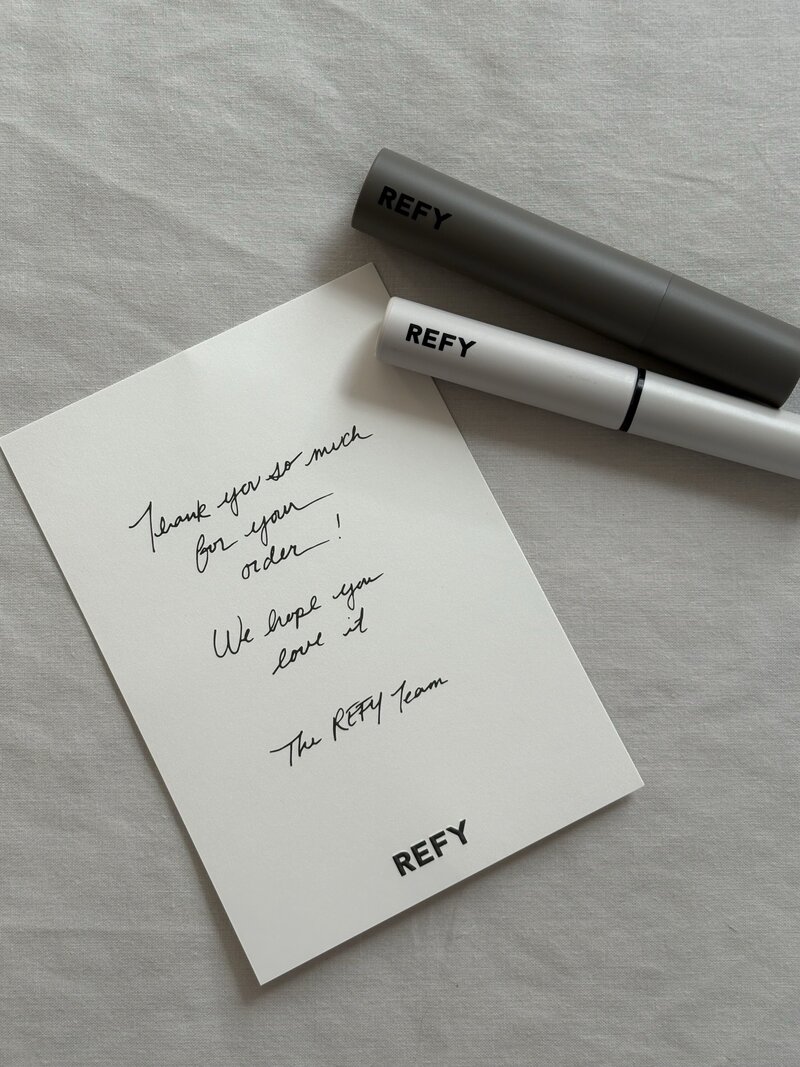 REFY
REFY
Thank you so much
for your
order!
We hope you
love it
The REFY Team
REFY